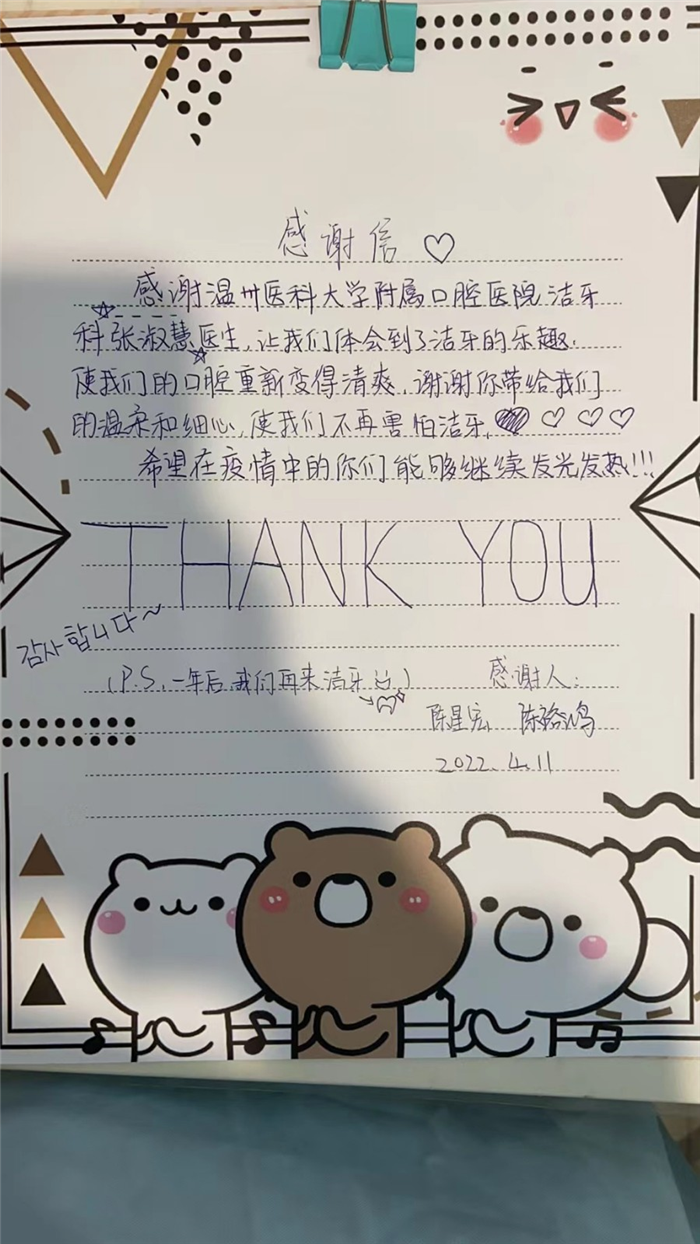 感谢信♡
感谢温州医科大学附属口腔医院洁牙
科张淑慧医生,让我们体会到了洁牙的乐趣.
使我们的口腔重新变得清爽.谢谢你带给我们
的温柔和细心,使我们不再害怕洁牙.♥♡♡♡
希望在疫情中的你们能够继续发光发热!!!
THANK YOU
감사합니다~
(P.S.一年后我们再来洁牙)
感谢人:
陈星宏
2022.4.11